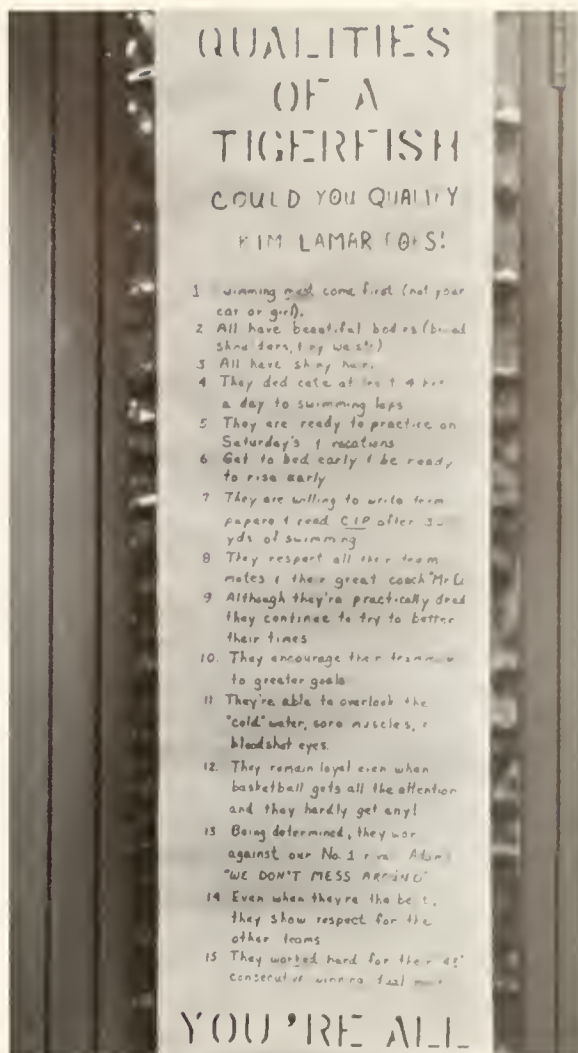 QUALITIES
OF A
TIGERFISH
COULD YOU QUALIFY
KIM LAMAR DOES!
1 Swimming must come first (not your
car or girl).
2 All have beautiful bodies (broad
shoulders, tiny waists)
3 All have shiny hair.
4 They dedicate at least 4 hrs
a day to swimming laps
5 They are ready to practice on
Saturday's & vacations
6 Get to bed early & be ready
to rise early
7 They are willing to write term
papers & read CIP after
yds of swimming
8 They respect all their team
mates & their great coach "Mr
9 Although they're practically dead
they continue to try to better
their times
10. They encourage their
to greater goals
11 They're able to overlook the
"cold" water, sore muscles, &
bloodshot eyes.
12. They remain loyal even when
basketball gets all the attention
and they hardly get any!
13 Being determined, they
against our No. 1 rival
"WE DON'T MESS AROUND"
14 Even when they're the best,
they show respect for the
other teams
15 They worked hard for their
consecutive winning dual
YOU'RE ALL